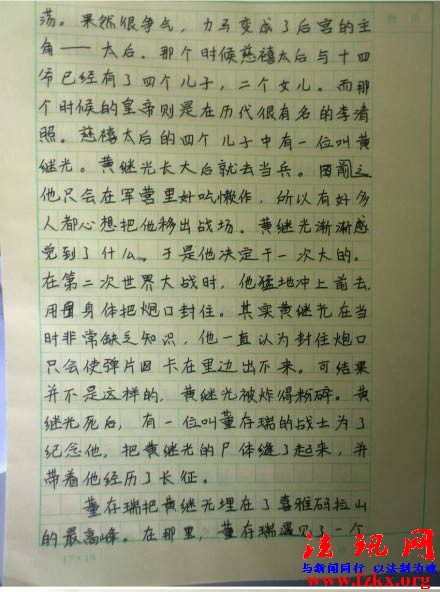 荡。果然很争气，力马变成了后宫的主
角——太后。那个时候慈禧太后与十四
爷已经有了四个儿子，二个女儿。而那
个时候的皇帝则是在历代很有名的李清
照。慈禧太后的四个儿子中有一位叫黄
继光。黄继光长大后就去当兵。因为
他只会在军营里好吃懒作，所以有好多
人都心想把他移出战场。黄继光渐渐感
觉到了什么。于是他决定干一次大的。
在第二次世界大战时，他猛地冲上前去，
用身体把炮口封住。其实黄继光在当
时非常缺乏知识，他一直认为封住炮口
只会使弹片卡在里边出不来。可结果
并不是这样的，黄继光被炸得粉碎。黄
继光死后，有一位叫董存瑞的战士为了
纪念他，把黄继光的尸体缝了起来，并
带着他经历了长征。
董存瑞把黄继光埋在了喜雅码拉山
的最高峰。在那里，董存瑞遇见了一个
17×19
法讯网
与新闻同行 以法制为诚
www.fzkx.org